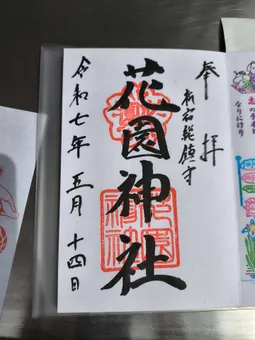 奉拝
新宿総鎮守
花園神社
令和七年五月十四日